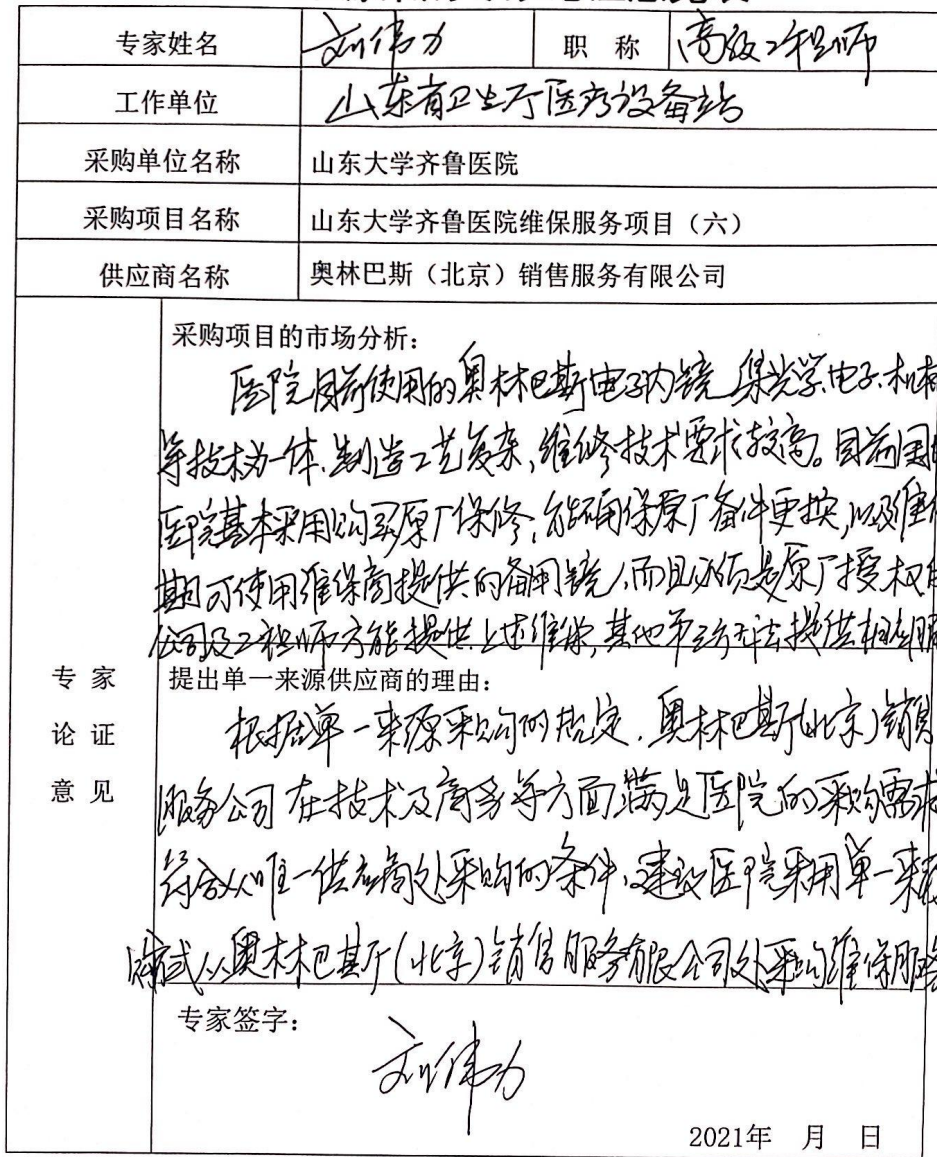 专家姓名 刘伟力 职 称 高级工程师
工作单位 山东省卫生厅医疗设备站
采购单位名称 山东大学齐鲁医院
采购项目名称 山东大学齐鲁医院维保服务项目（六）
供应商名称 奥林巴斯（北京）销售服务有限公司
采购项目的市场分析：
医院目前使用的奥林巴斯电子内镜，集光学、电子、机械
等技术为一体，制造工艺复杂，维修技术要求较高。目前国
医院基本采用购买原厂保修，能确保原厂备件更换，以及维
期可使用维保商提供的备用镜，而且必须是原厂授权
公司及工程师方能提供上述维保，其他单位无法提供相
专 家
论 证
意 见
提出单一来源供应商的理由：
根据单一来源采购的规定，奥林巴斯(北京)销售
服务公司在技术及商务等方面满足医院的采购需求
符合从唯一供应商处采购的条件，建议医院采用单一来
式从奥林巴斯(北京)销售服务有限公司处采购维保服务
专家签字：
刘伟力
2021年 月 日